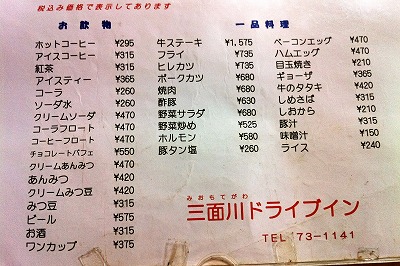 税込み価格で表示してあります
お飲物
ホットコーヒー ¥295
アイスコーヒー ¥315
紅茶 ¥315
アイスティー ¥365
コーラ ¥260
ソーダ水 ¥260
クリームソーダ ¥470
コーラフロート ¥470
コーヒーフロート ¥470
チョコレートパフェ ¥550
クリームあんみつ ¥470
あんみつ ¥420
クリームみつ豆 ¥420
みつ豆 ¥315
ビール ¥575
お酒 ¥315
ワンカップ ¥375
一品料理
牛ステーキ ¥1,575
フライ ¥735
ヒレカツ ¥735
ポークカツ ¥680
焼肉 ¥680
酢豚 ¥630
野菜サラダ ¥680
野菜炒め ¥525
ホルモン ¥680
豚タン塩 ¥260
ベーコンエッグ ¥470
ハムエッグ ¥470
目玉焼き ¥210
ギョーザ ¥365
牛のタタキ ¥420
しめさば ¥315
しおから ¥210
豚汁 ¥315
味噌汁 ¥150
ライス ¥240
みおもてがわ
三面川ドライブイン
TEL 73-1141